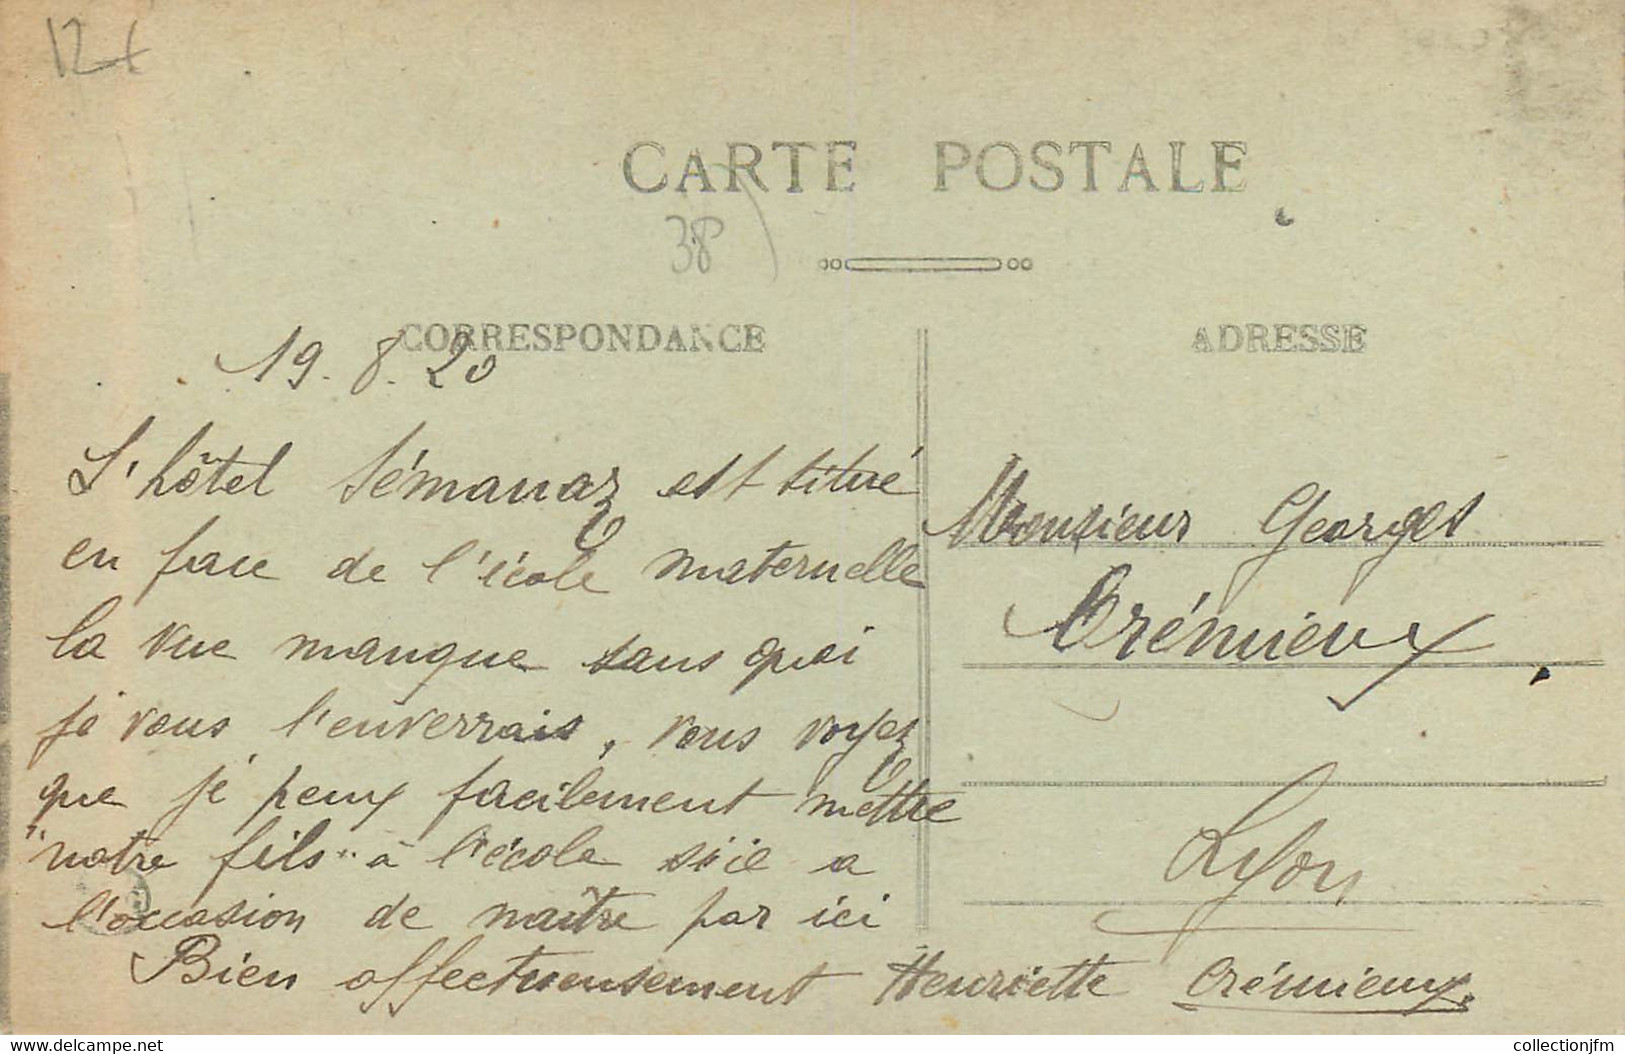 12f
CARTE POSTALE
38
CORRESPONDANCE
ADRESSE
19.8.20
L'hôtel Sémanaz est situé
en face de l'école maternelle
la vue manque sans quoi
je vous l'enverrais, vous voyez
que je peux facilement mettre
"notre fils" à l'école s'il a
l'occasion de naître par ici
Bien affectueusement Henriette Crémieux
Monsieur Georges
Crémieux
Lyon
collectionjfm